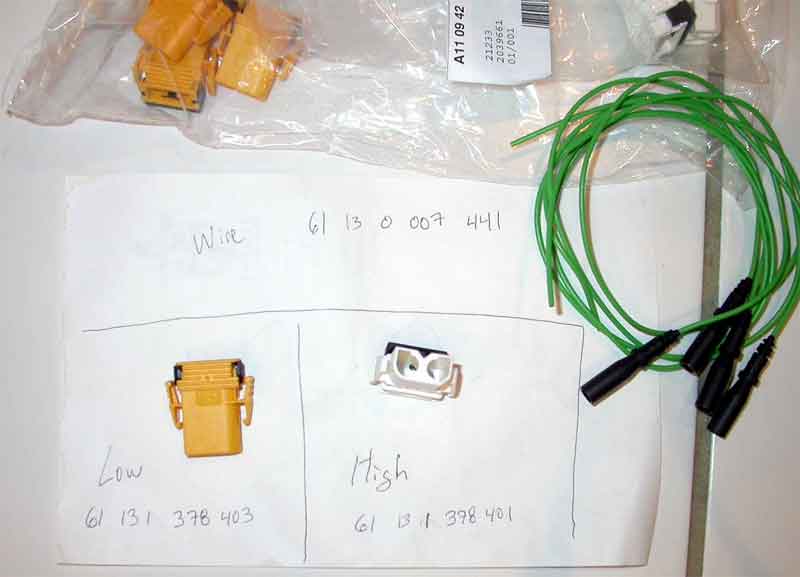 A11 09 42
21233
2039661
01/001
Wire 61 13 0 007 441
Low
61 13 1 378 403
High
61 13 1 378 401